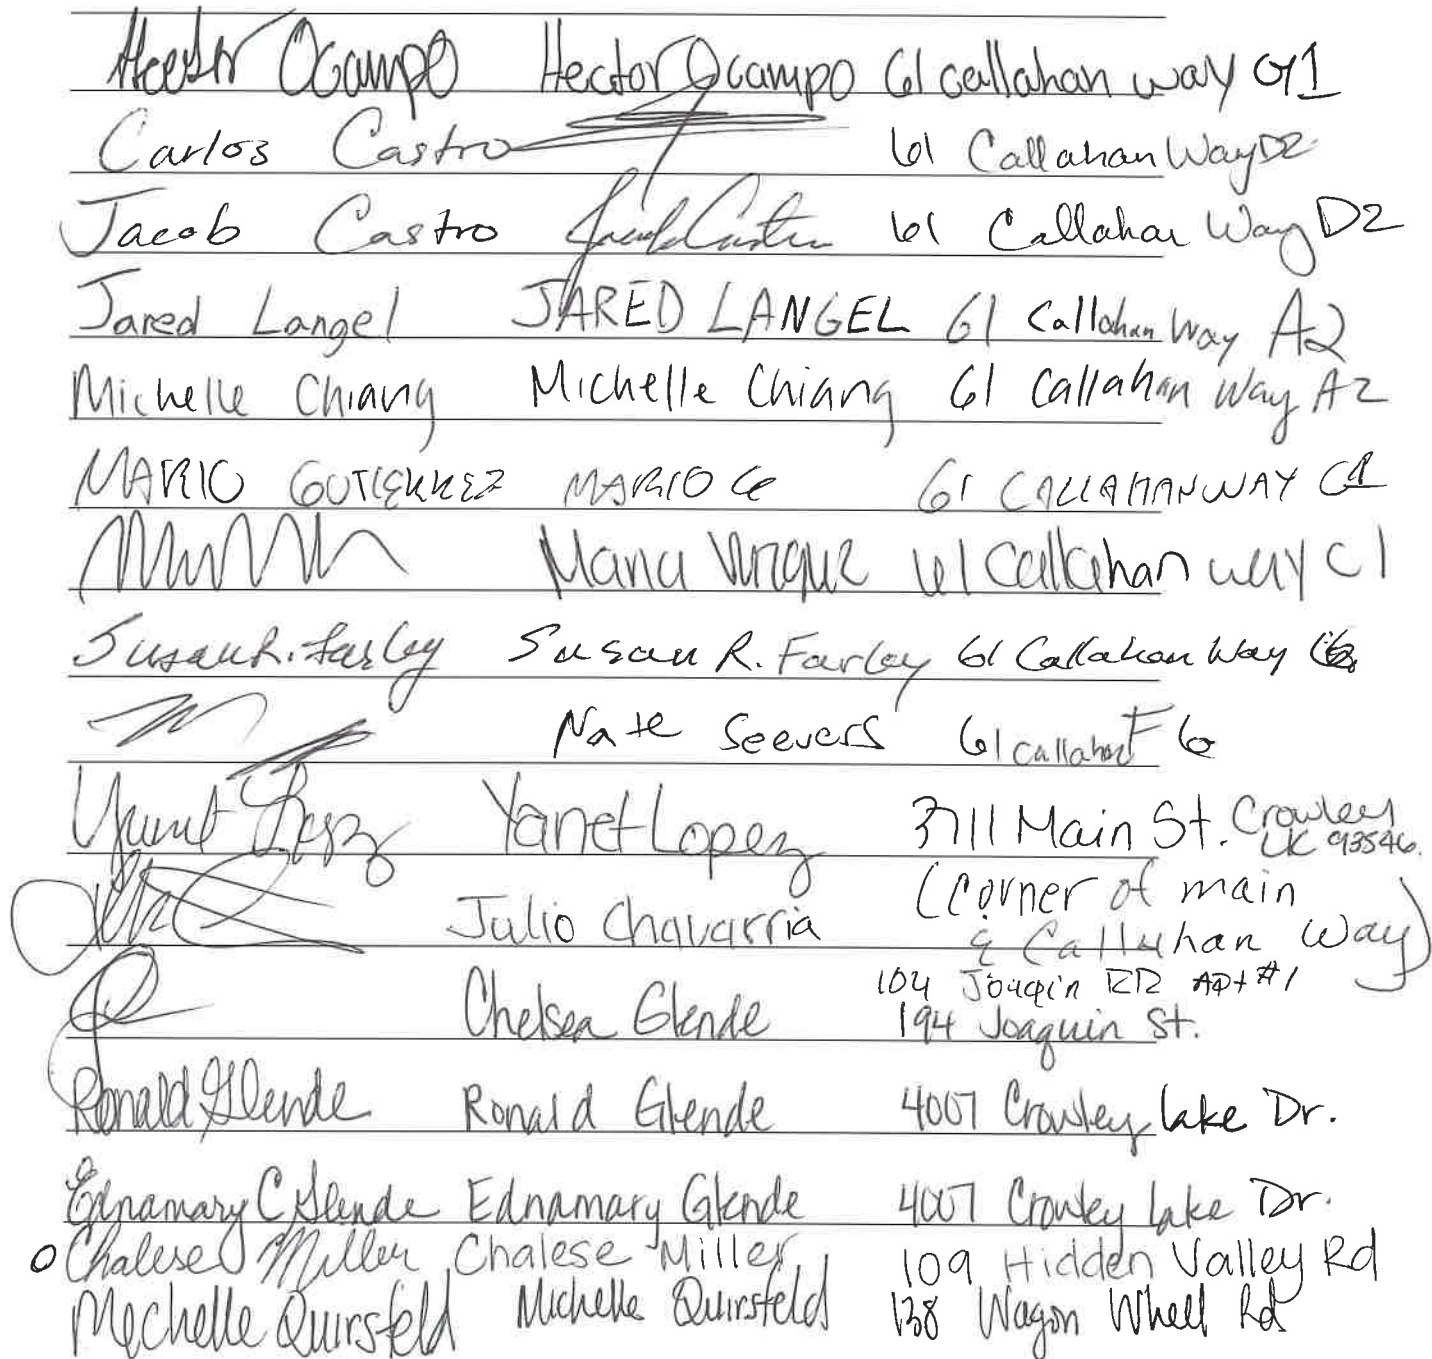 Hector Ocampo Hector Ocampo 61 Callahan way G1
Carlos Castro 61 Callahan Way D2
Jacob Castro Jacob Castro 61 Callahan Way D2
Jared Langel JARED LANGEL 61 Callahan Way A2
Michelle Chiang Michelle Chiang 61 Callahan Way A2
MARIO GUTIERREZ MARIO G 61 CALLAHAN WAY C1
61 Callahan way C1
Susan R. Farley Susan R. Farley 61 Callahan Way
Nate Seevers 61 Callahan F6
Yanet Lopez Yanet Lopez 3711 Main St. Crowley
LK 93546.
Julio Chavarria (corner of main
& Callahan Way)
104 Joaqin RD Apt #1
Chelsea Glende 194 Joaquin St.
Ronald Glende Ronald Glende 4007 Crowley lake Dr.
Ednamary C Glende Ednamary Glende 4007 Crowley lake Dr.
Chalese Miller Chalese Miller 109 Hidden Valley Rd
Mechelle Quirsfeld Michelle Quirsfeld 138 Wagon Whell Rd